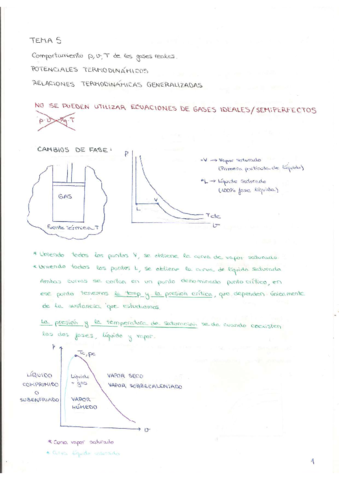 TEMA 5
Comportamiento p, v, T de los gases reales.
POTENCIALES TERMODINÁMICOS
RELACIONES TERMODINÁMICAS GENERALIZADAS
NO SE PUEDEN UTILIZAR ECUACIONES DE GASES IDEALES/SEMIPERFECTOS
CAMBIOS DE FASE:
P
• V → Vapor saturado
(Primera partícula de líquido)
• L → Líquido saturado
(100% fase líquida)
GAS
L
V
T cte
v
Fuente térmica T
* Uniendo todos los puntos V, se obtiene la curva de vapor saturado
* Uniendo todos los puntos L, se obtiene la curva de líquido saturado
Ambas curvas se cortan en un punto denominado punto crítico, en
ese punto tenemos la temp y la presión crítica, que dependen únicamente
de la sustancia que estudiamos.
La presión y la temperatura de saturación se da cuando coexisten
las dos fases, líquido y vapor.
P
Tc, pc
LÍQUIDO
COMPRIMIDO
O
SUBENFRIADO
Líquido
+ gas
VAPOR
HÚMEDO
VAPOR SECO
VAPOR SOBRECALENTADO
v
* Curva vapor saturado
* Curva líquido saturado
1